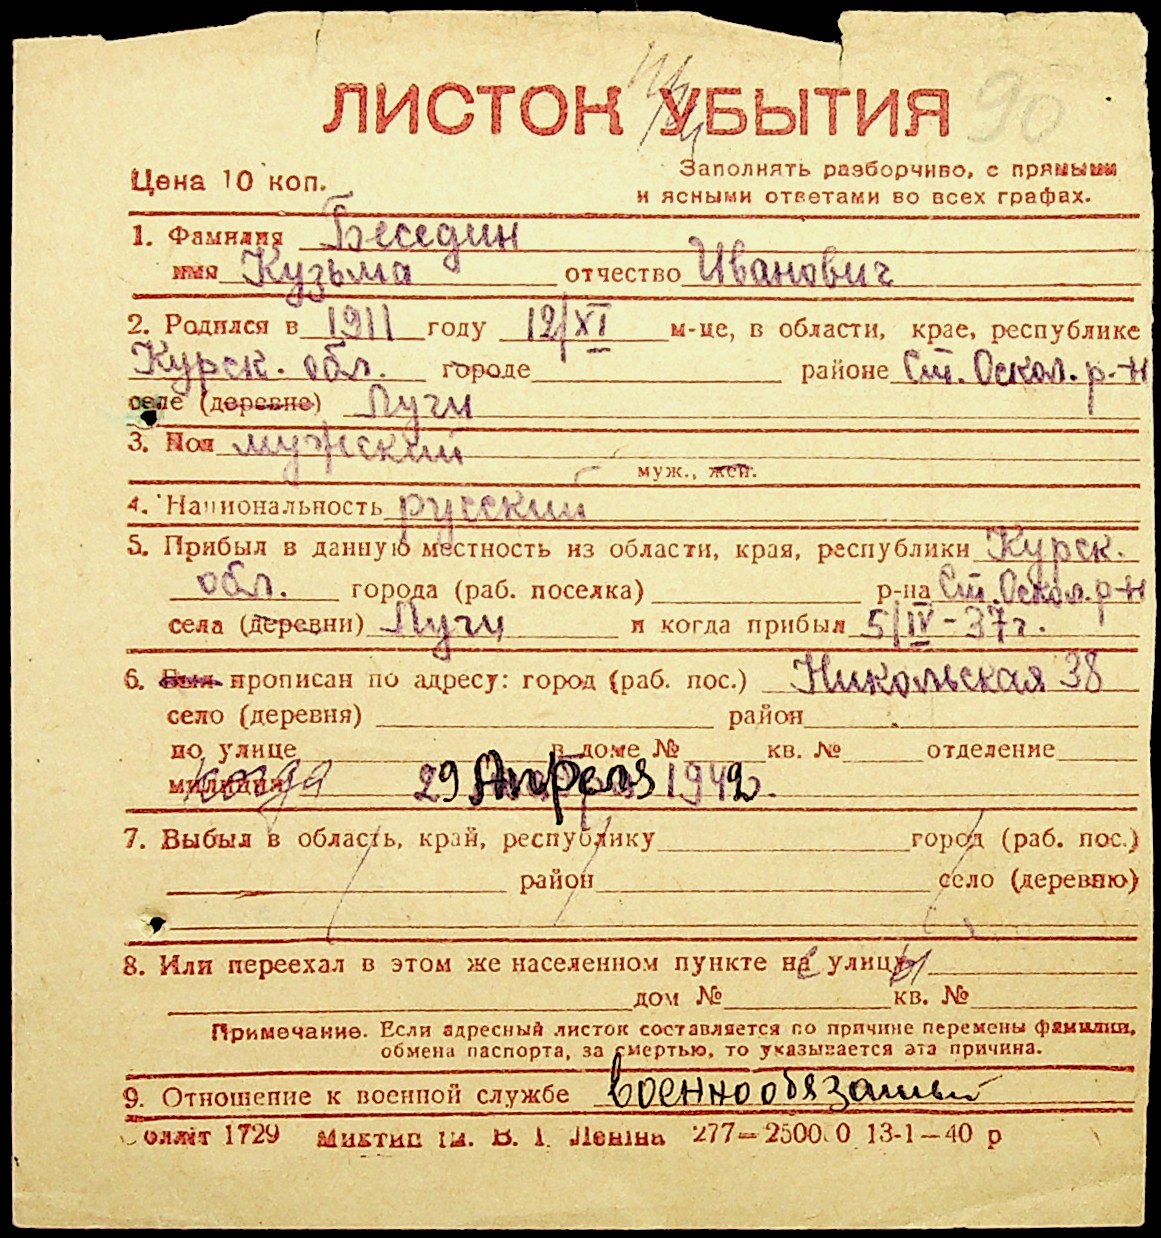 ЛИСТОК УБЫТИЯ
90
Цена 10 коп.
Заполнять разборчиво, с прямыми
и ясными ответами во всех графах.
1. Фамилия Беседин
имя Кузьма отчество Иванович
2. Родился в 1911 году 12/XI м-це, в области, крае, республике
Курск. обл. городе районе Ст. Оскол. р-н
селе (деревне) Луги
3. Пол мужский
муж., жен.
4. Национальность русский
5. Прибыл в данную местность из области, края, республики Курск.
обл. города (раб. поселка) р-на Ст. Оскол. р-н
села (деревни) Луги и когда прибыл 5/IV-37г.
6. Был прописан по адресу: город (раб. пос.) Никольская 38
село (деревня) район
по улице в доме № кв. № отделение
милиции когда 29 Апреля 1942.
7. Выбыл в область, край, республику город (раб. пос.)
район село (деревню)
8. Или переехал в этом же населенном пункте на улицу
дом № кв. №
Примечание. Если адресный листок составляется по причине перемены фамилии,
обмена паспорта, за смертью, то указывается эта причина.
9. Отношение к военной службе военнообязаный
1729 ім. В. І. Леніна 277— 13-1—40 р